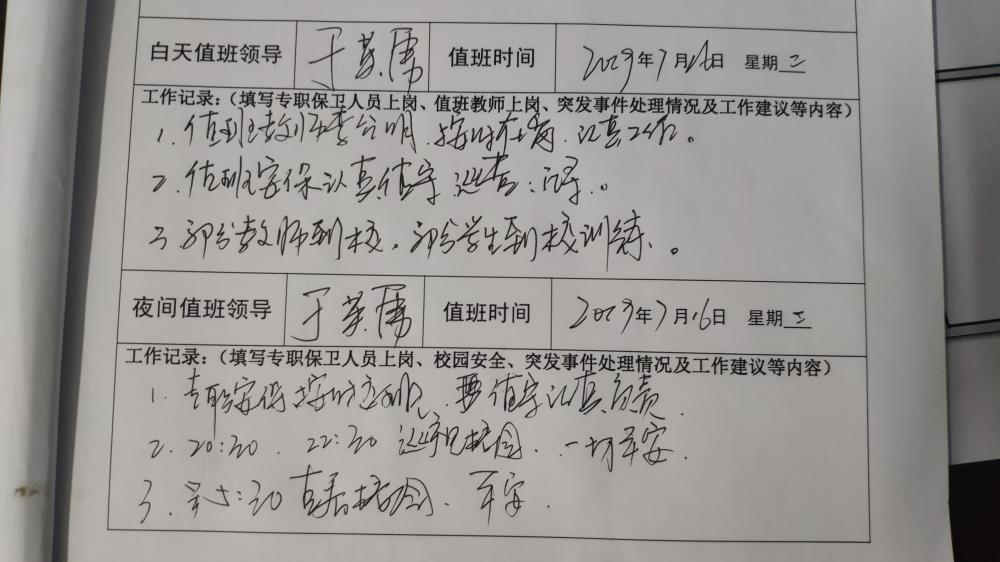 白天值班领导 于英儒 值班时间 2023年7月26日 星期三
工作记录：（填写专职保卫人员上岗、值班教师上岗、突发事件处理情况及工作建议等内容）
1. 值班教师李 明 按时在岗、认真工作。
2. 值班安保认真值守 巡查、记录。
3. 部分教师到校，部分学生到校训练。
夜间值班领导 于英儒 值班时间 年7月 日 星期三
工作记录：（填写专职保卫人员上岗、校园安全、突发事件处理情况及工作建议等内容）
1. 专职安保按时 值守认真负责.
2. 20:30 22:30 巡 校园. 一切平安.
3. :30 校园、平安.